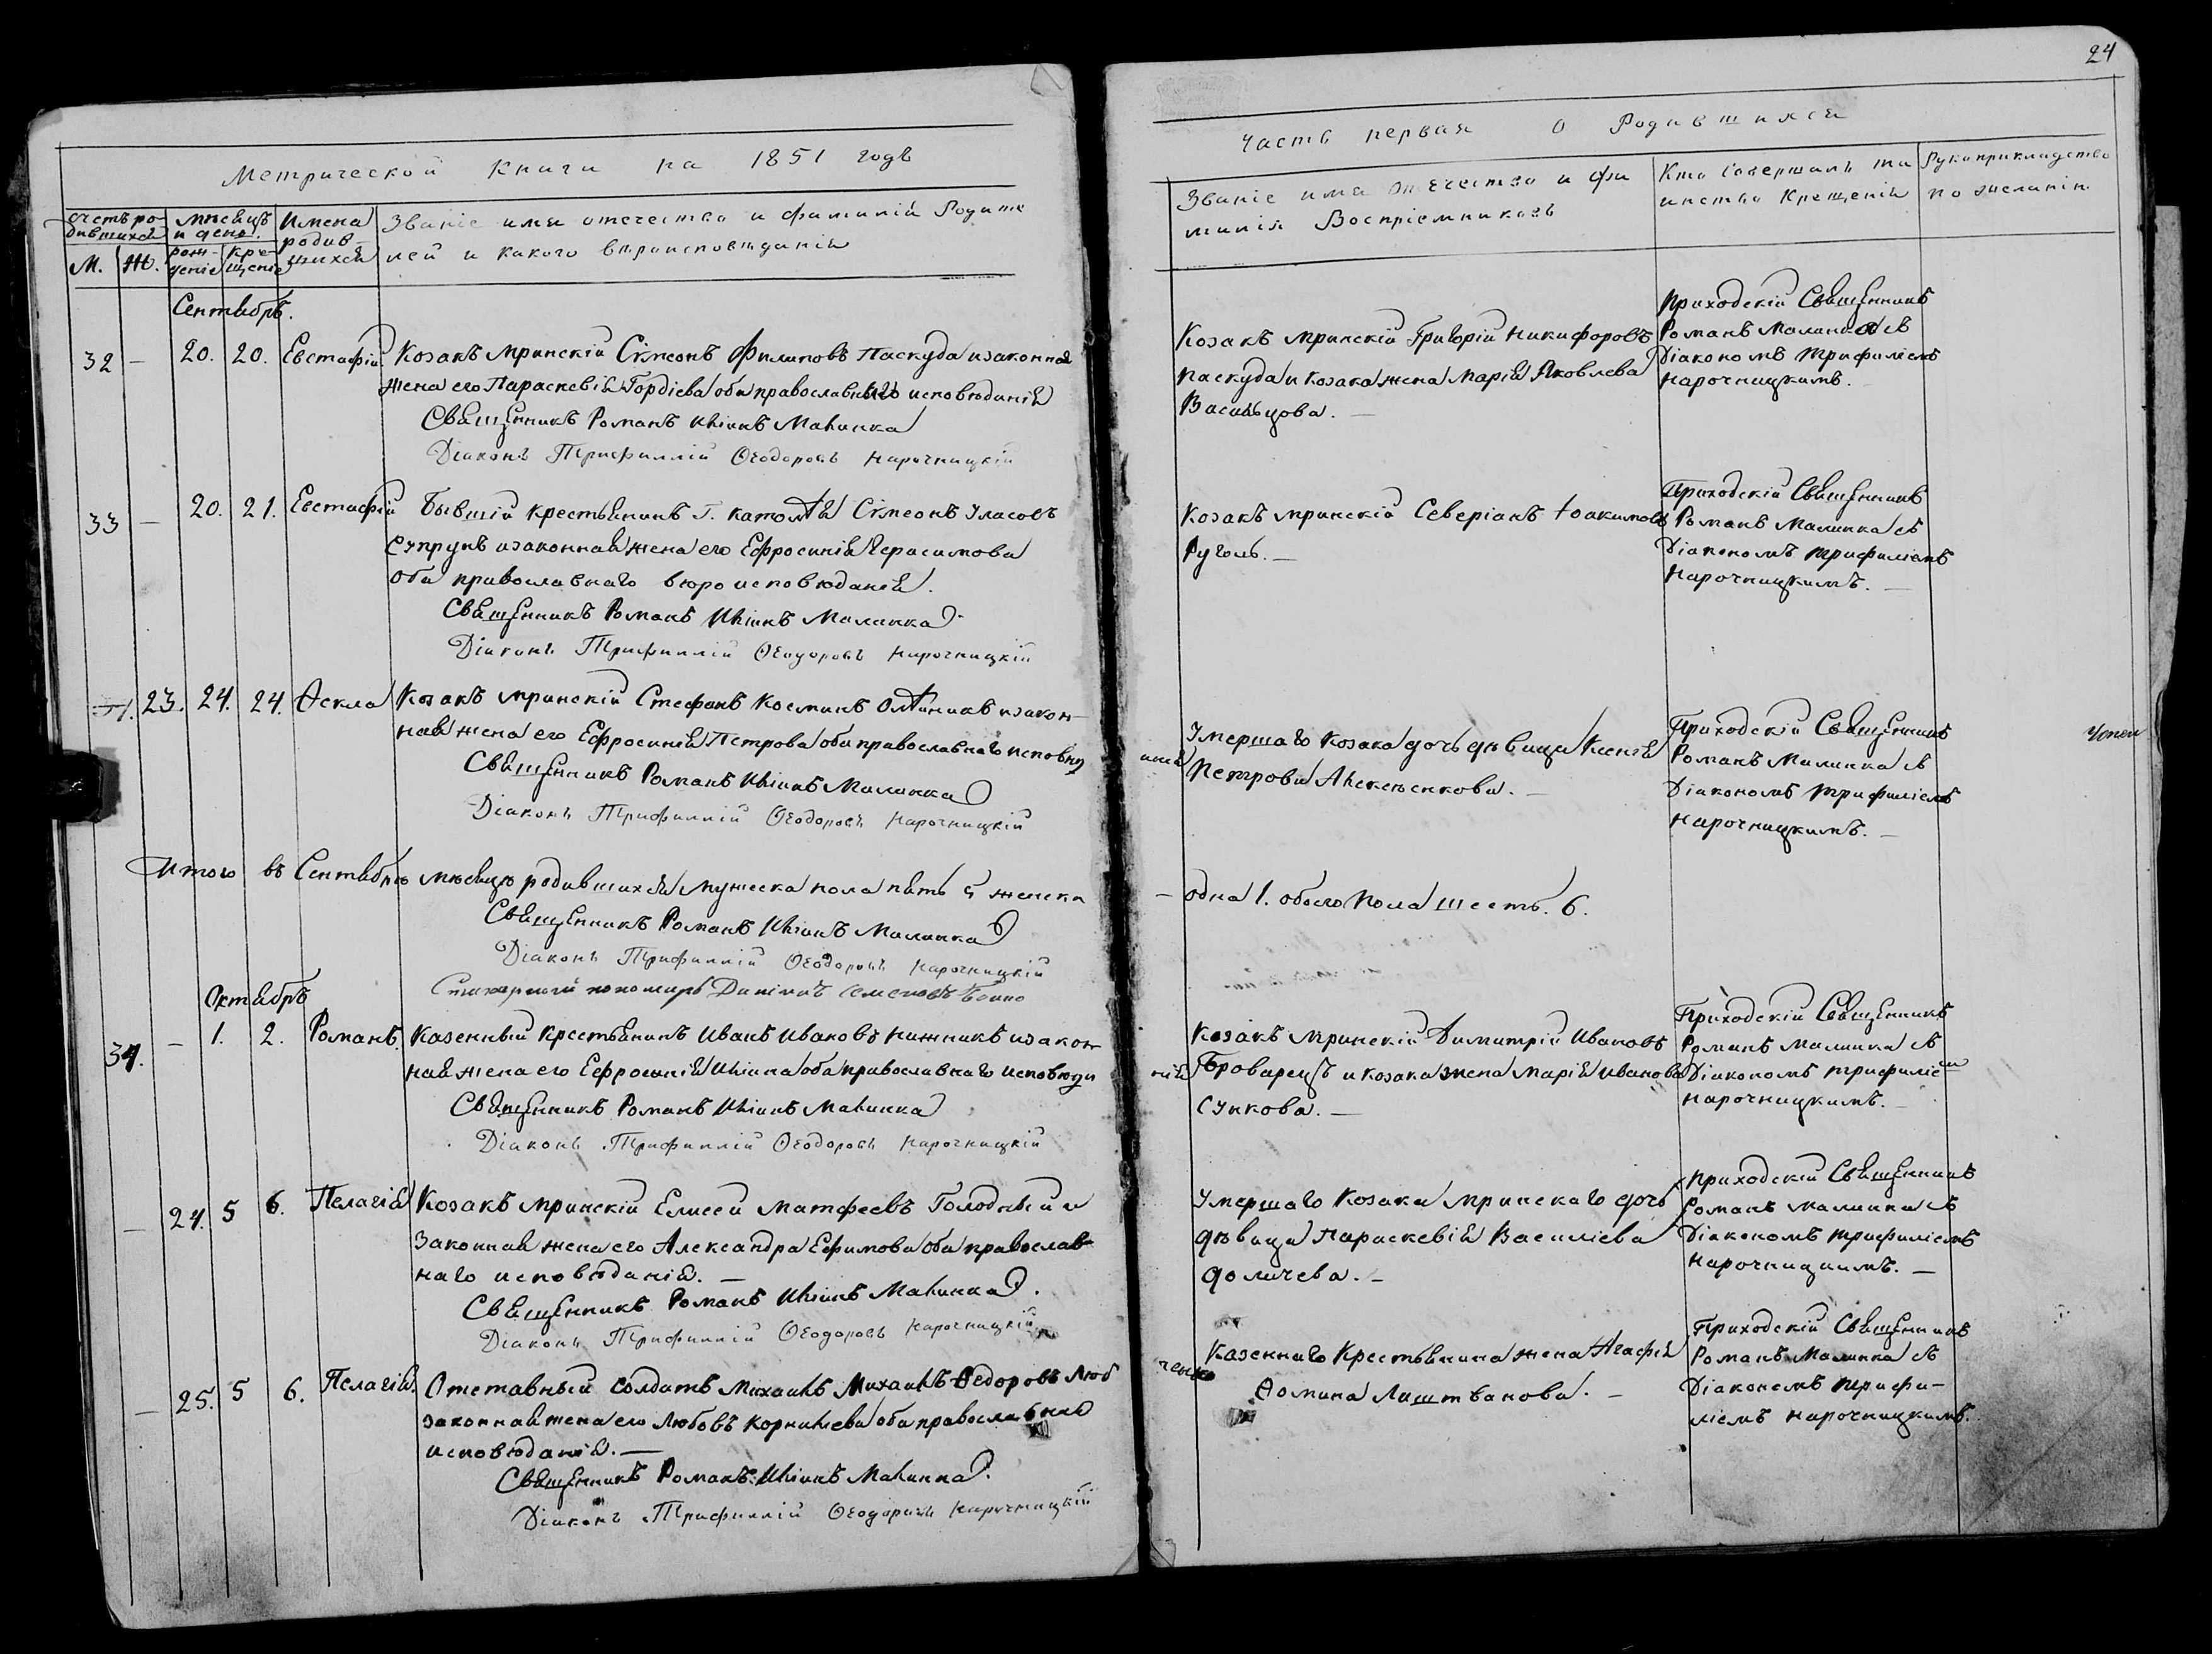 24
Метрической Книги на 1851 годъ
Часть первая о Родившихся
Счетъ родившихся
М. Ж.
мѣсяцъ и день
рожденіе крещеніе
Имена родившихся
Званіе имя отечество и фамилія Родителей и какого вѣроисповѣданія
Званіе имя отечество и фамилія Воспріемниковъ
Кто совершалъ таинство Крещенія
Рукоприкладство по желанію
Сентябрь.
32 — 20. 20. Евстафій
Козакъ мринскій Сімеонъ Филиповъ Паскуда и законная
жена его Параскевія Гордіева оба православнаго исповѣданія
Священникъ Романъ Иліинъ Малинка
Діаконъ Трифиллій Ѳеодоровъ Нарочницкій
Козакъ мринскій Григорій Никифоровъ
Паскуда и козака жена Марія Яковлева
Васильцова. —
Приходскій Священникъ
Романъ Малинка съ
Діакономъ Трифиліемъ
Нарочницкимъ.
33 — 20. 21. Евстафій
Бывшій крестьянинъ Г. Сімеонъ Уласовъ
Супрунъ и законная жена его Ефросинія Герасимова
оба православнаго вѣроисповѣданія.
Священникъ Романъ Иліинъ Малинка
Діаконъ Трифиллій Ѳеодоровъ Нарочницкій
Козакъ мринскій Северіанъ Іоакимовъ
Руголь. —
Приходскій Священникъ
Романъ Малинка съ
Діакономъ Трифиліемъ
Нарочницкимъ. —
23. 24. 24. Ѳекла
Козакъ мринскій Стефанъ Косминъ и закон-
ная жена его Ефросинія Петрова оба православнаго исповѣд
анія
Священникъ Романъ Иліинъ Малинка
Діаконъ Трифиллій Ѳеодоровъ Нарочницкій
Умершаго козака дочь дѣвица Ксенія
Петрова Алексеенкова. —
Приходскій Священникъ
Романъ Малинка съ
Діакономъ Трифиліемъ
Нарочницкимъ. —
Итого въ Сентябрѣ мѣсяцѣ родившихся мужеска пола пять 5 женска
— одна 1. обоего пола шесть. 6.
Священникъ Романъ Иліинъ Малинка
Діаконъ Трифиллій Ѳеодоровъ Нарочницкій
пономарь Даніилъ Семеновъ Бойко
Октябрь
34. — 1. 2. Романъ.
Казенный крестьянинъ Иванъ Ивановъ Нижникъ и закон-
ная жена его Ефросинія Иліина оба православнаго исповѣда
нія
Священникъ Романъ Иліинъ Малинка
Діаконъ Трифиллій Ѳеодоровъ Нарочницкій
Козакъ мринскій Димитрій Ивановъ
Броварецъ и козака жена Марія Иванова
Сункова. —
Приходскій Священникъ
Романъ Малинка съ
Діакономъ Трифиліем
Нарочницкимъ. —
— 24. 5 6. Пелагія
Козакъ мринскій Елисей Матфеевъ Голодный и
законная жена его Александра Ефимова оба православ-
наго исповѣданія. —
Священникъ Романъ Иліинъ Малинка.
Діаконъ Трифиллій Ѳеодоровъ Нарочницкій
Умершаго козака мринскаго дочь
дѣвица Параскевія Василіева
Доличева. —
Приходскій Священникъ
Романъ Малинка съ
Діакономъ Трифиліемъ
Нарочницкимъ. —
— 25. 5 6. Пелагія.
Отставный солдатъ Михаилъ Михаилъ Ѳедоровъ Люб
ченко
законная жена его Любовъ Корниліева оба православнаго
исповѣданія. —
Священникъ Романъ Иліинъ Малинка.
Діаконъ Трифиллій Ѳеодоровъ Нарочницкій
Казеннаго Крестьянина жена Агафія
Ѳомина Лиштванова. —
Приходскій Священникъ
Романъ Малинка съ
Діакономъ Трифи-
ліемъ Нарочницкимъ.